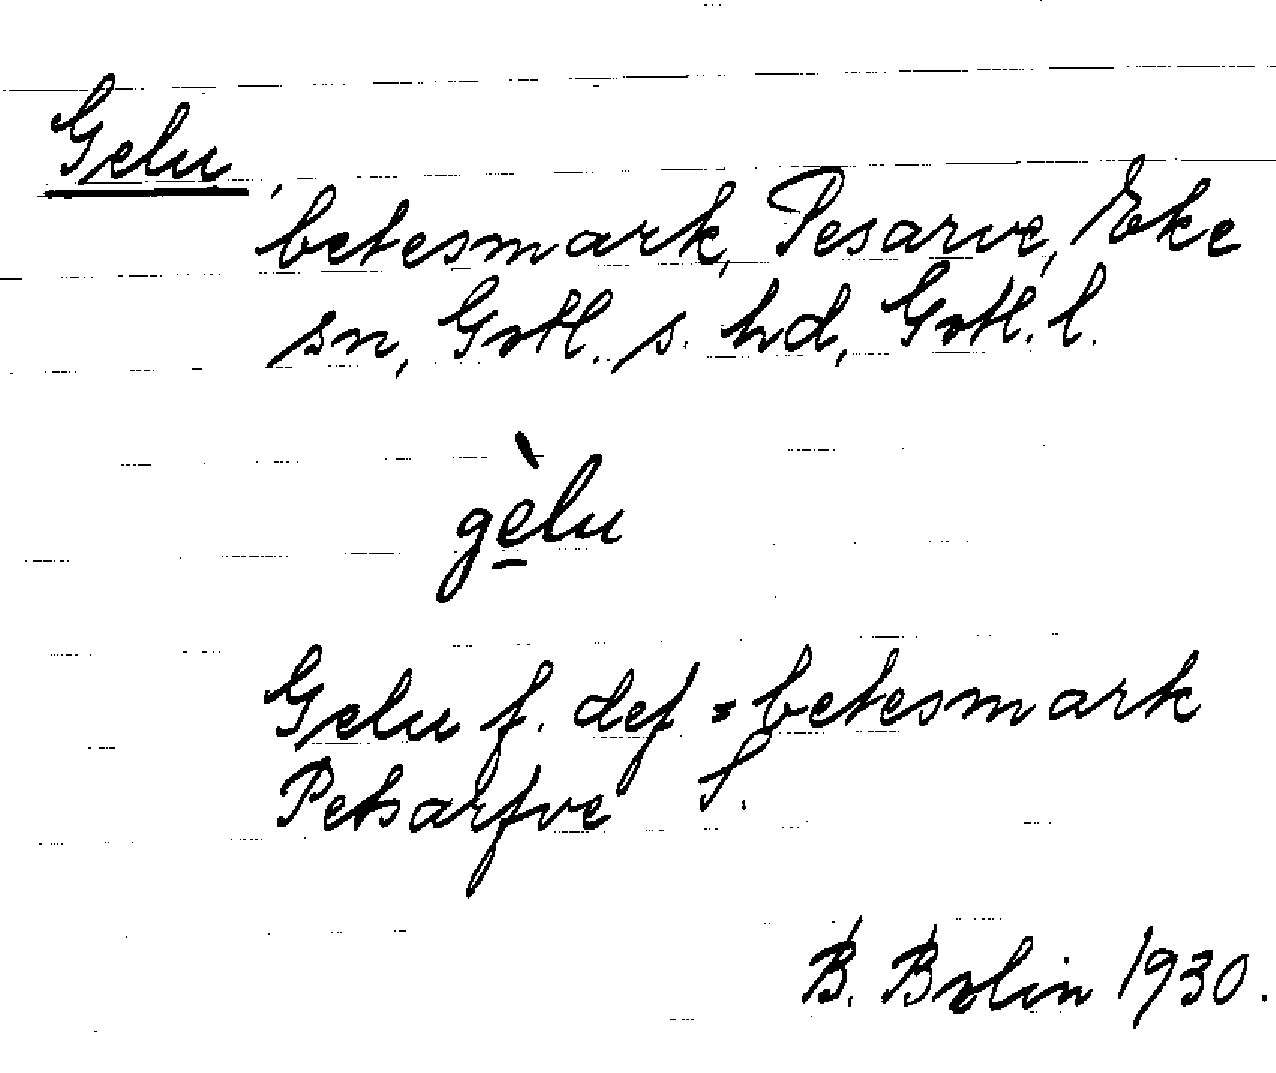 Gelu,
betesmark, Pesarve, Eke
sn, Gotl. s. hd, Gotl. l.
gèlu
Gelu f. def = betesmark
Petsarfve S.
B. Bolin 1930.